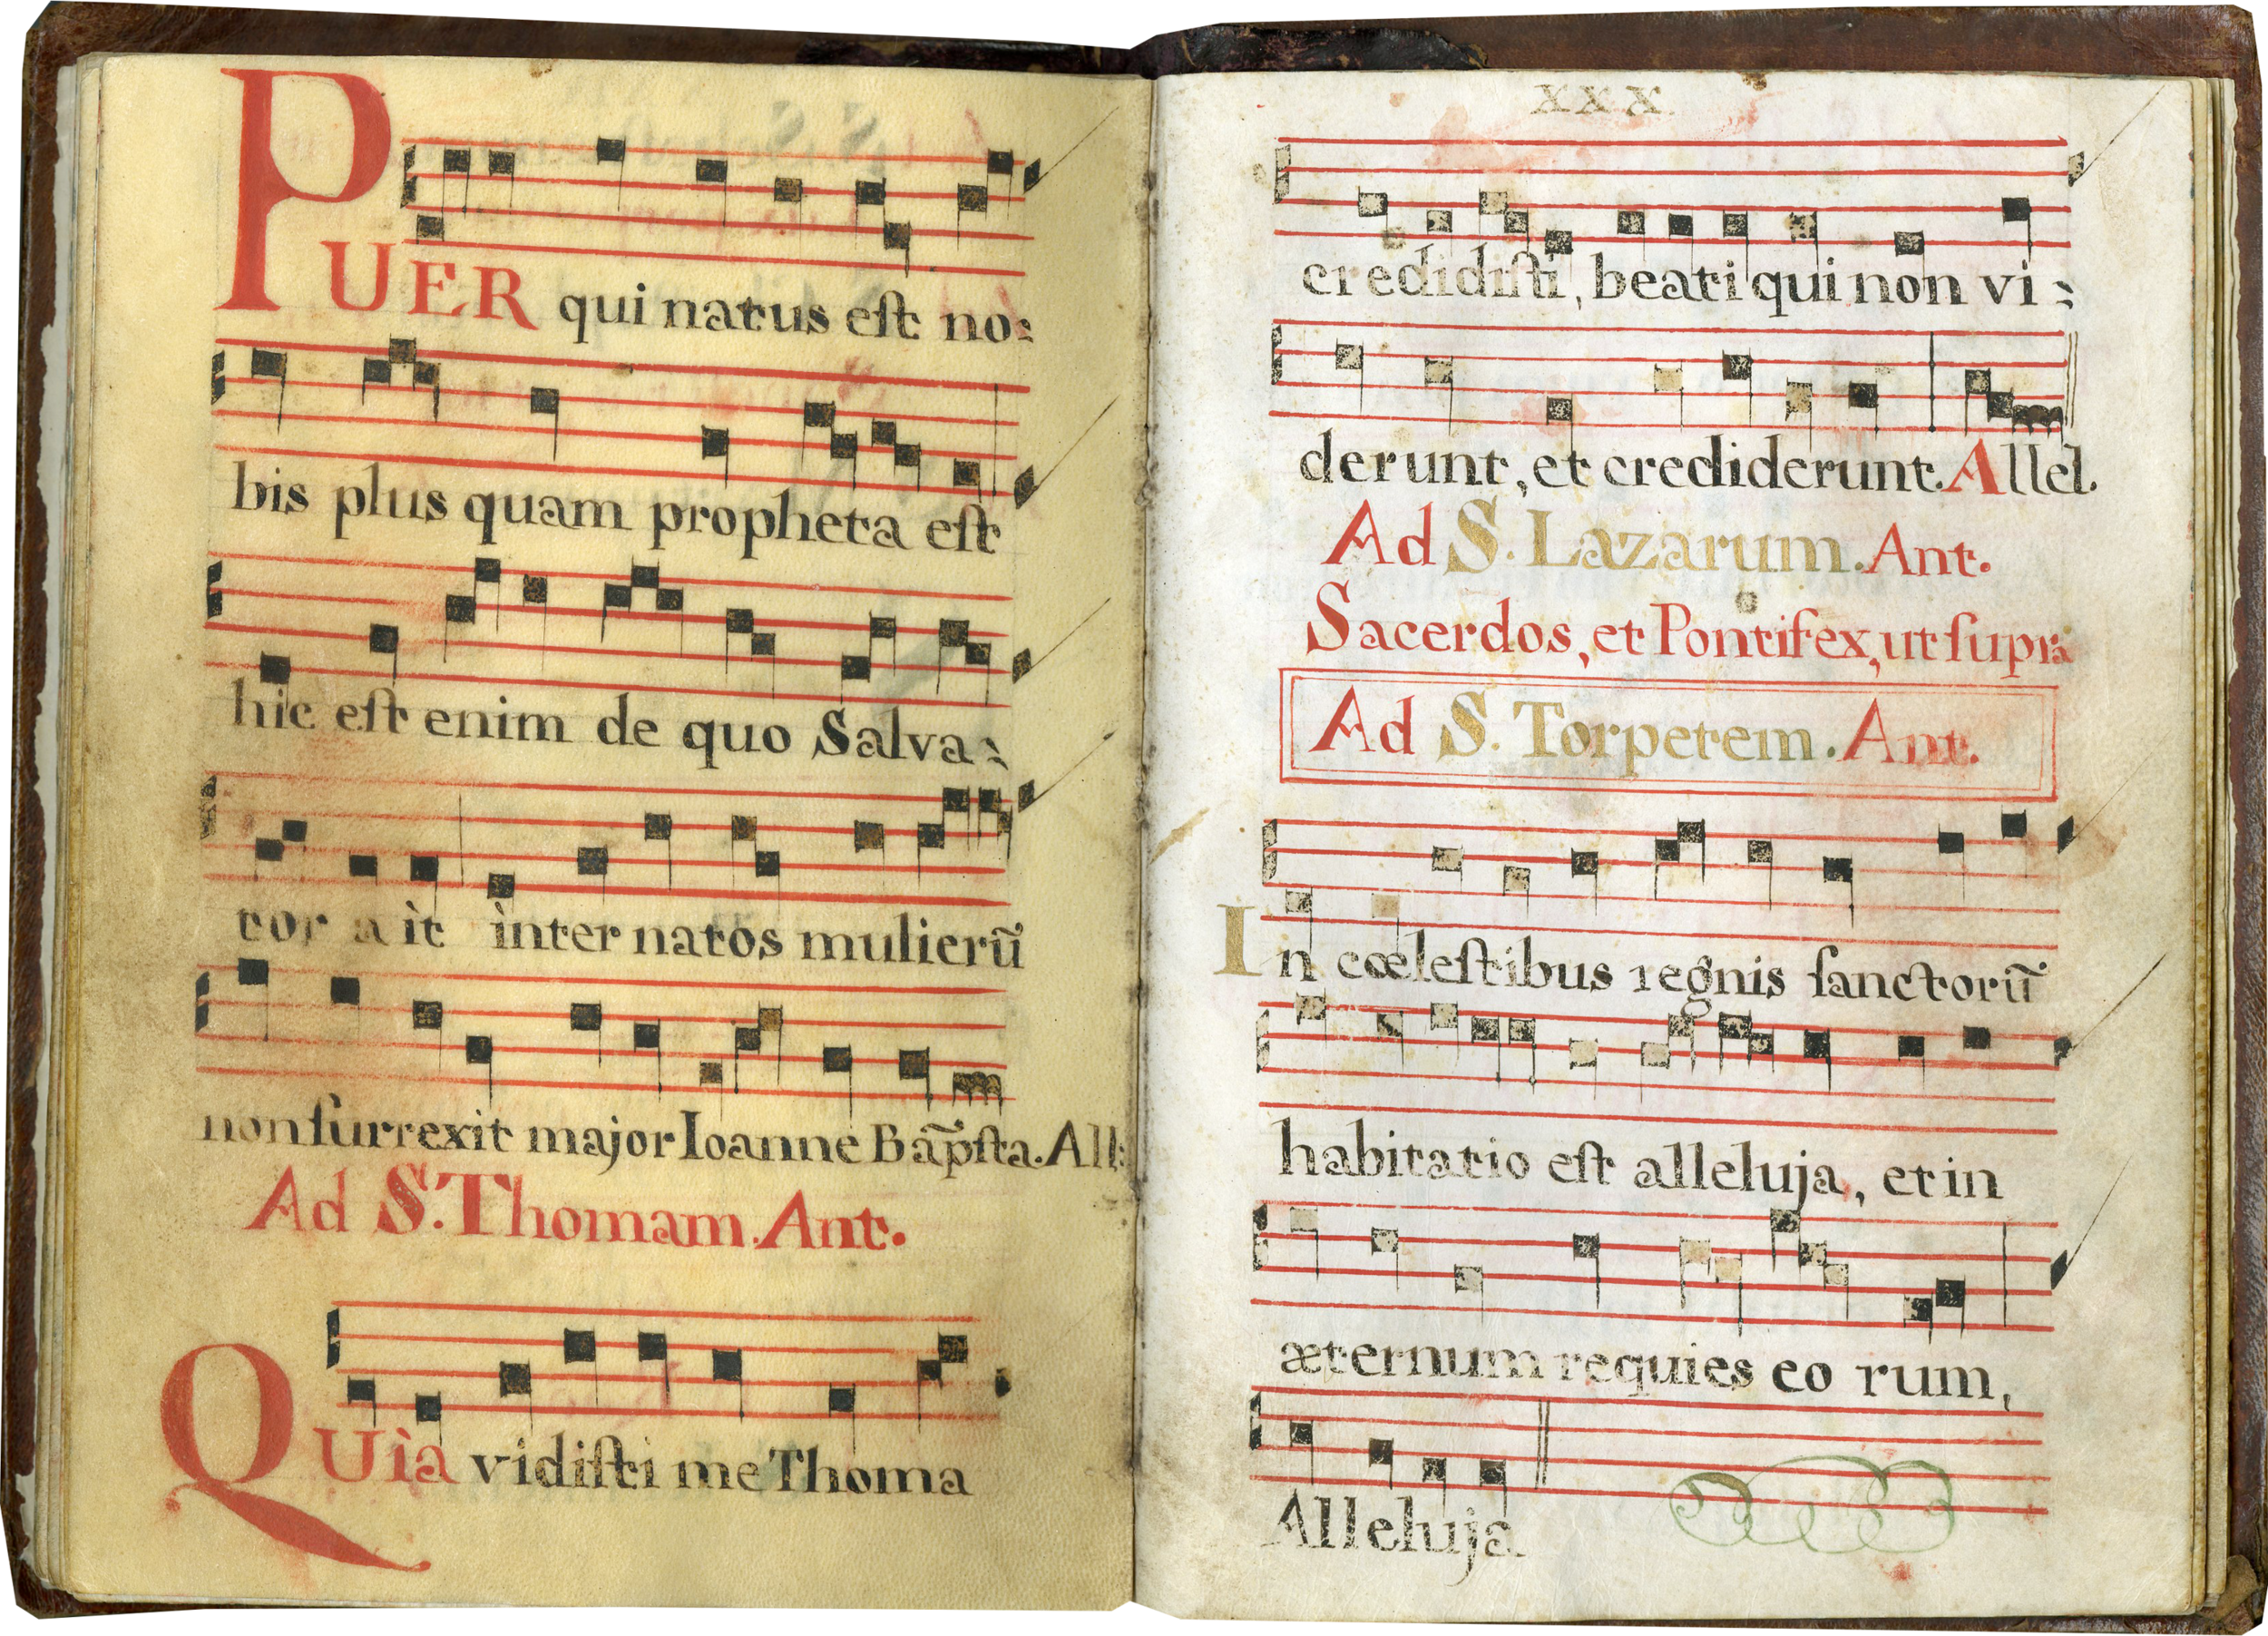 PUER qui natus eſt no:
bis plus quam propheta eſt
hic eſt enim de quo Salva:
tor aìt ìnter natos mulierũ
non ſurrexit major Ioanne Bap̃ſta. All:
Ad S. Thomam. Ant.
QUìa vidiſti me Thoma
XXX.
credidiſti, beati qui non vi:
derunt, et crediderunt. Allel.
Ad S. Lazarum. Ant.
Sacerdos, et Pontifex, ut ſupra
Ad S. Torpetem. Ant.
In cœleſtibus regnis ſanctorũ
habitatio eſt alleluja, et in
æternum requies eo rum,
Alleluja